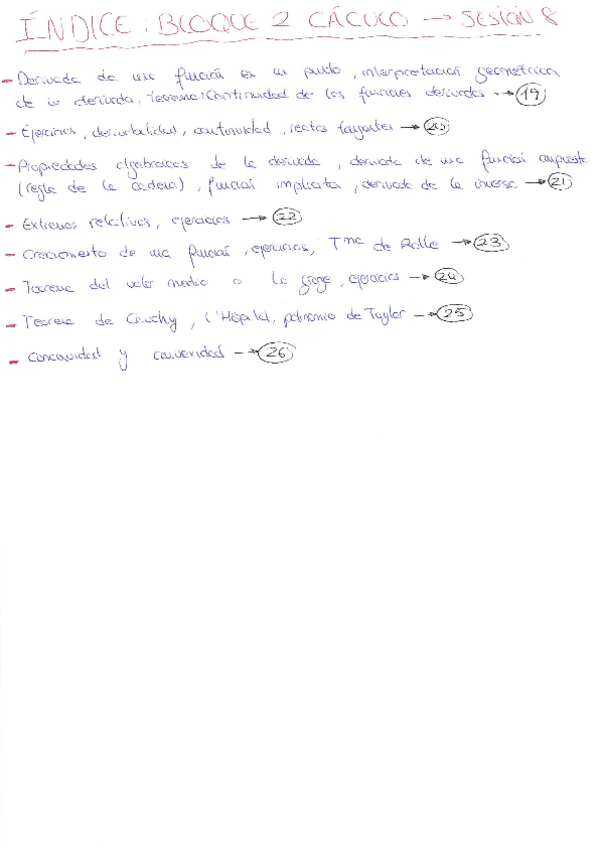 ÍNDICE: BLOQUE 2 CÁCULO → SESIÓN 8
- Derivada de una función en un punto, interpretación geométrica
de la derivada, Teorema: Continuidad de las funciones derivables → 19
- Ejercicios, derivabilidad, continuidad, rectas tangentes → 20
- Propiedades algebraicas de la derivada, derivada de una función compuesta
(regla de la cadena), función implícita, derivada de la inversa → 21
- Extremos relativos, ejercicios → 22
- Crecimiento de una función, ejercicios, Tma de Rolle → 23
- Teorema del valor medio o la grange, ejercicios → 24
- Teorema de Cauchy, L'Hôpital, polinomio de Taylor → 25
- Concavidad y convexidad → 26